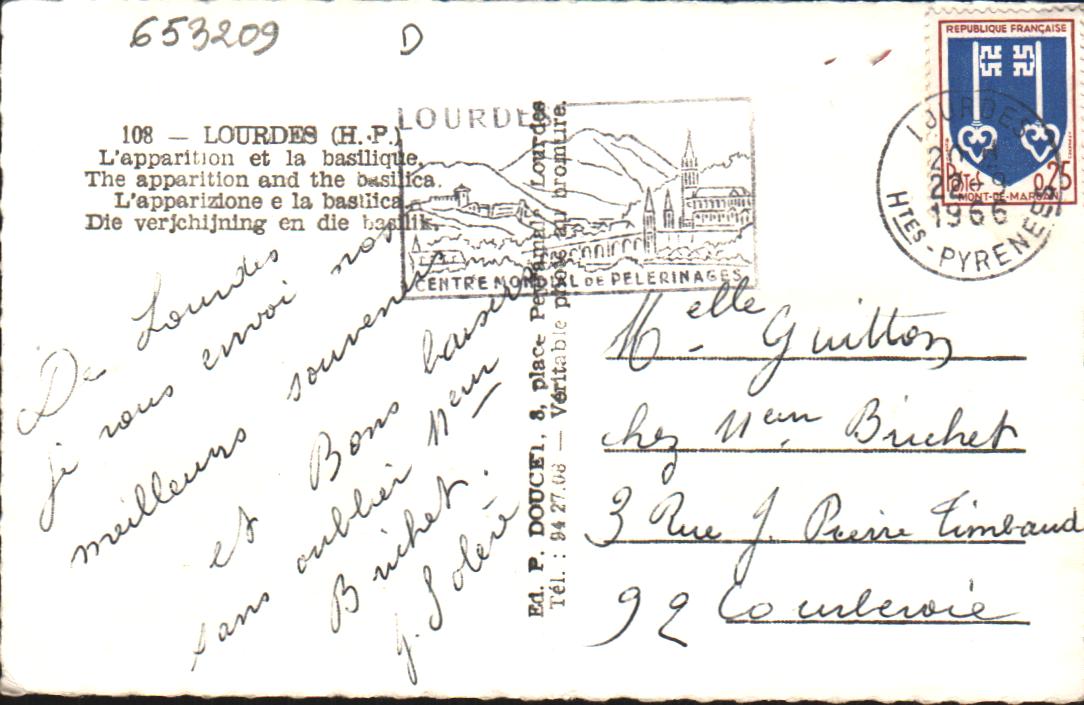 653209 D
108 — LOURDES (H.-P.)
L'apparition et la basilique.
The apparition and the basilica.
L'apparizione e la basilica.
Die verjchijning en die basilik.
LOURDES
CENTRE MONDIAL DE PELERINAGES
REPUBLIQUE FRANÇAISE
POSTES 0,25
MONT-DE-MARSAN
LOURDES
22-9
1966
HTES-PYRENEES
De Lourdes
je vous envoi nos
meilleurs souvenirs
et Bons baisers
sans oublier Mem
Brichet.
J. Solere
Ed. P. DOUCET, 8, place Peyramale Lourdes
Tél. : 94 27.08 — Véritable photo au bromure.
Melle Guitton
chez Mem Brichet
3 Rue J. Pierre Timbaud
92 Courbevoie